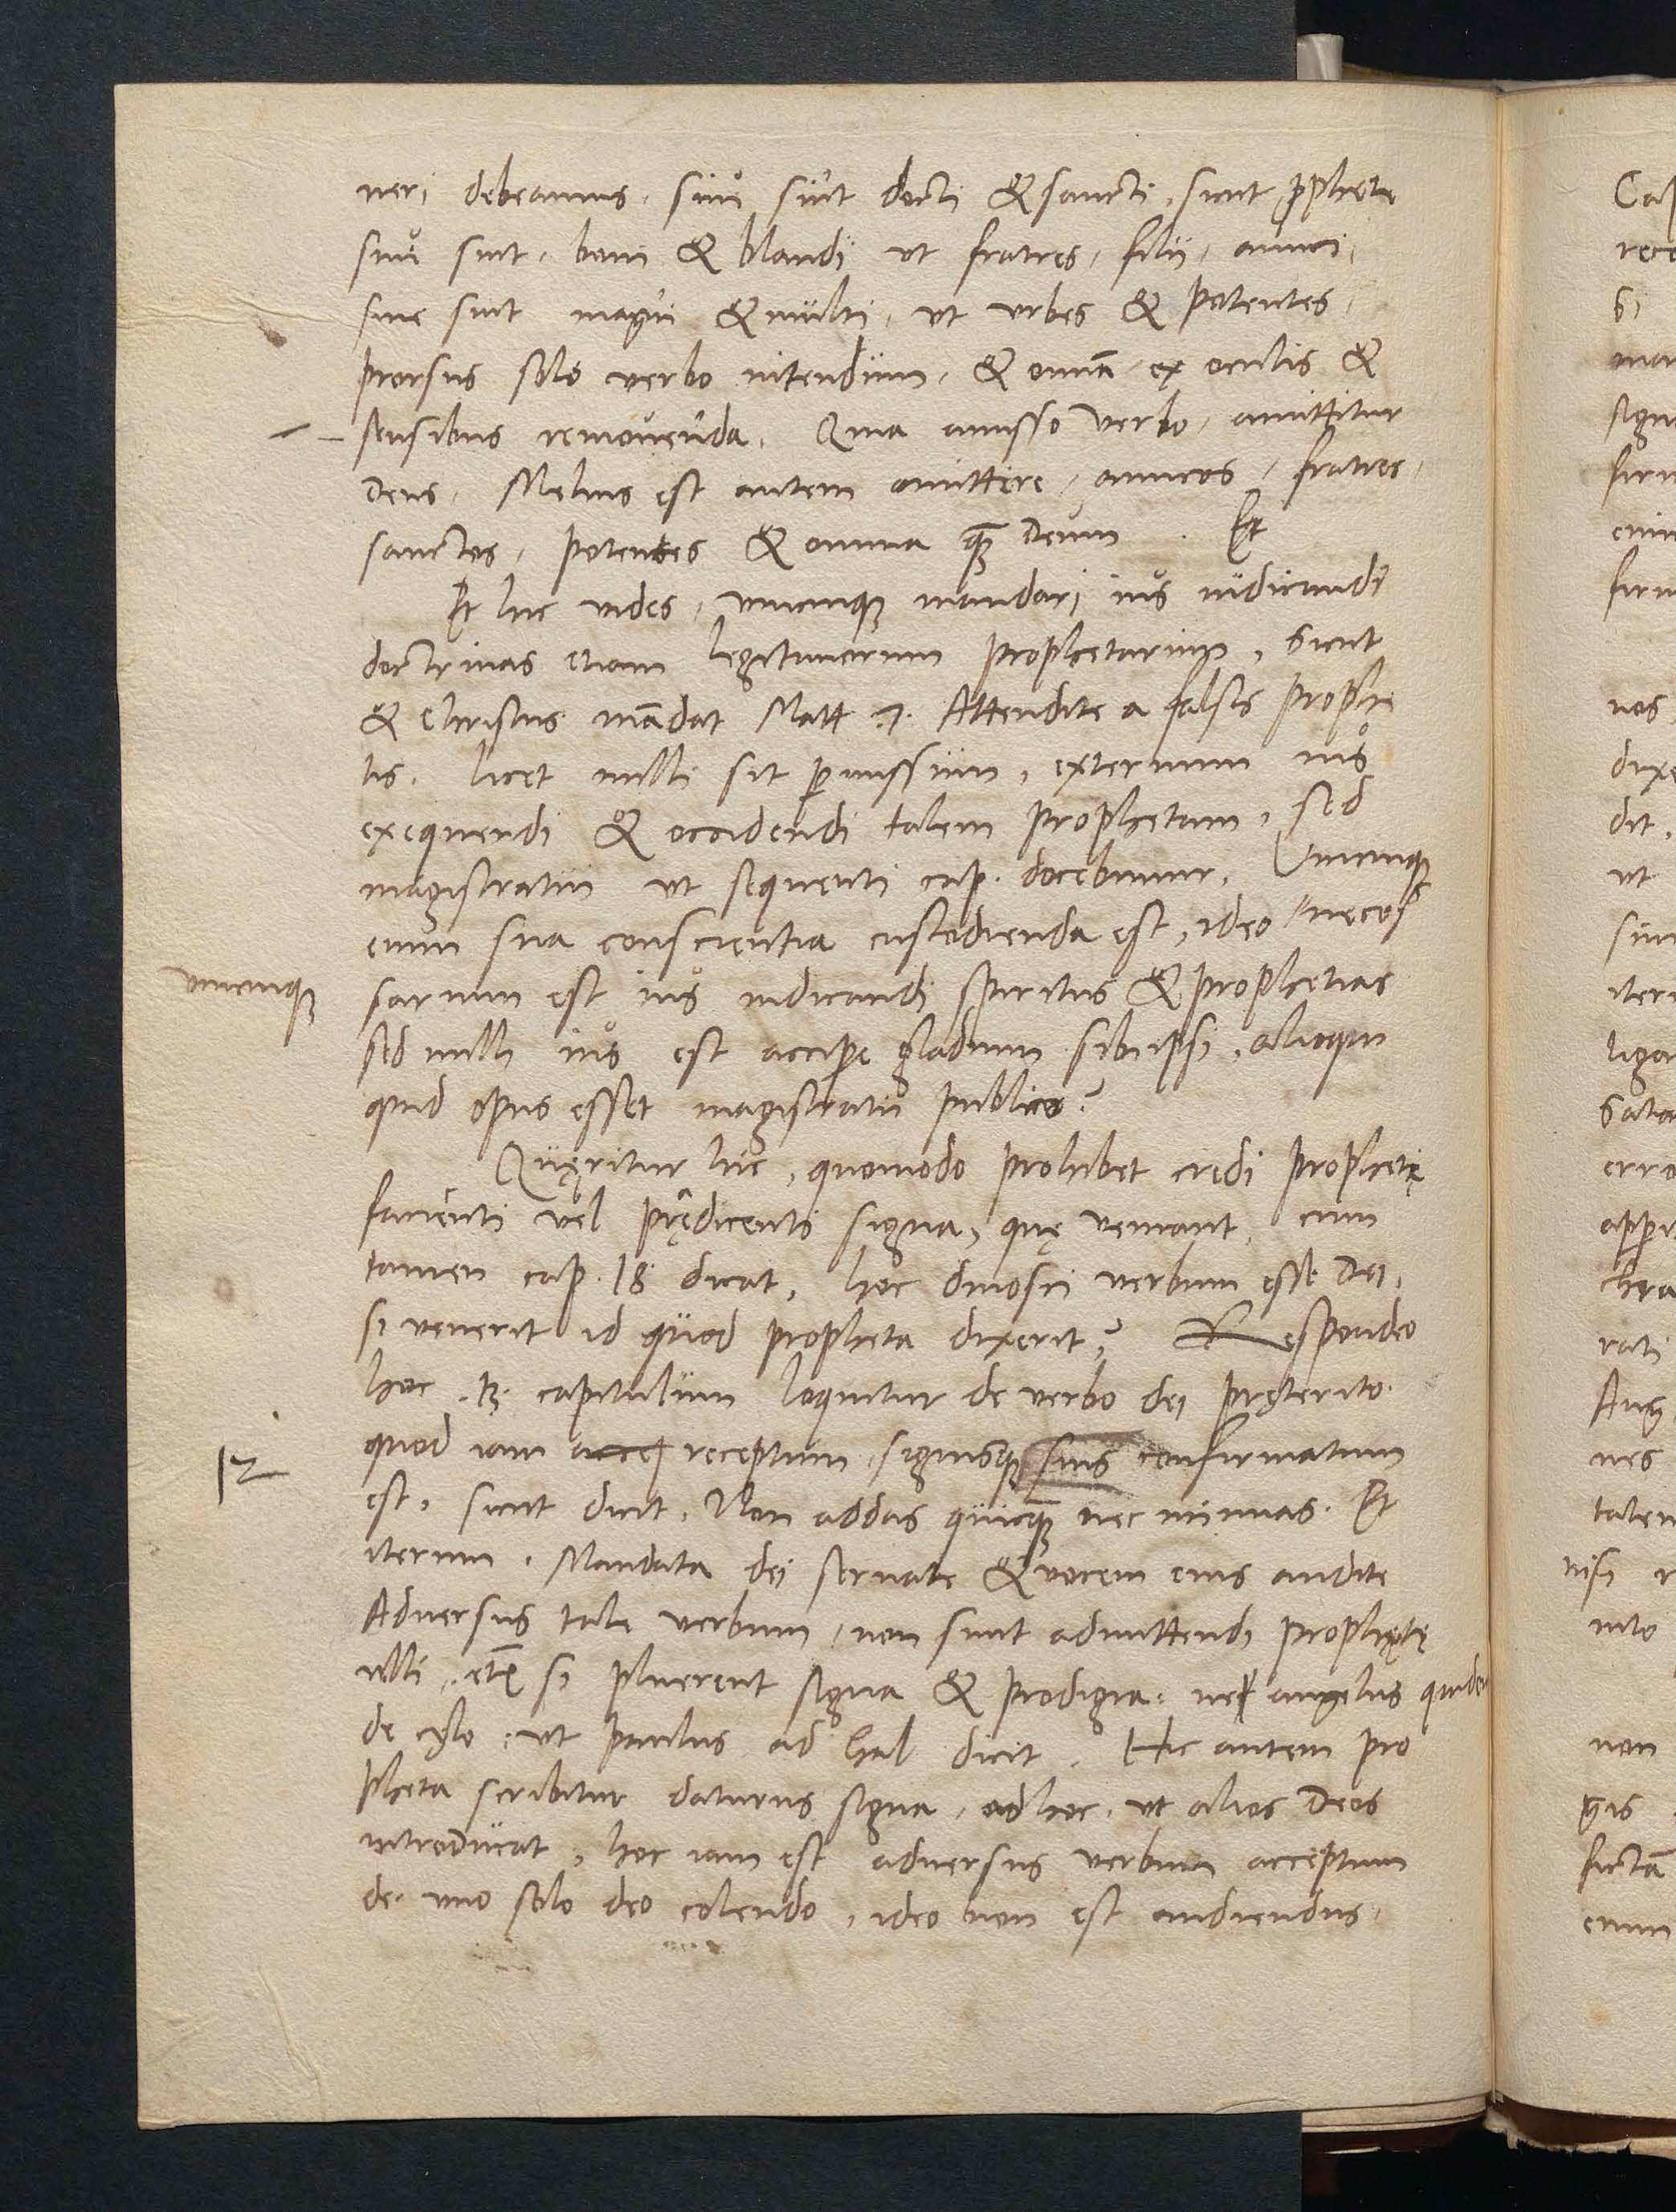 neri debeamus. siue sint docti & sancti, sicut ꝓphete
siue sint, boni & blandi ut fratres, filii, amici,
siue sint magni & multi, ut urbes & potentes,
prorsus solo verbo nitendum, & omnia ex oculis &
sensibus remouenda. Quia amisso verbo, amittitur
Deus. Melius est autem amittere, amicos, fratres,
sanctos, potentes & omnia quã Deum. Et
Et hic uides, unicuiqꝫ mandari ius iudicandi
doctrinas etiam legitimorum prophetarum, Sicut
& Christus mãdat Matt .7. Attendite a falsis prophe
tis. licet nulli sit ꝑmissum, externum ius
exequendi & occidendi talem prophetam, sed
magistratui ut sequenti cap. docebimur. Unicuiqꝫ
enim sua conscientia custodienda est, ideo " neces
unicuiqꝫ
sarium est ius iudicandi spiritus & prophetias
sed nulli ius est acciꝑe gladium sibiipsi, alioqui
quid opus esset magistratu publico?
Quęritur hic, quomodo prohibet credi prophetę
facienti uel prędicenti signa, quę ueniant, cum
tamen cap. 18 dicat, hoc dinosci verbum esse Dei,
si venerit id quod propheta dixerit? Respondeo
hoc .13. capitulum loquitur de verbo dei pręterito.
quod iam accep receptum, signisqꝫ suis confirmatum
est, sicut dicit, Non addas quicquã nec minuas. Et
iterum. Mandata dei seruate & vocem eius audite
Aduersus tale verbum, non sunt admittendi prophetę
ulli, etiã si pluerent signa & prodigia, nec angelus quidem
de cęlo, ut Paulus ad Gal dicit. Hic autem pro
pheta scribitur daturus signa, ad hoc, ut alios Deos
introducat, hoc iam est aduersus verbum acceptum
de uno solo deo colendo, ideo non est audiendus.